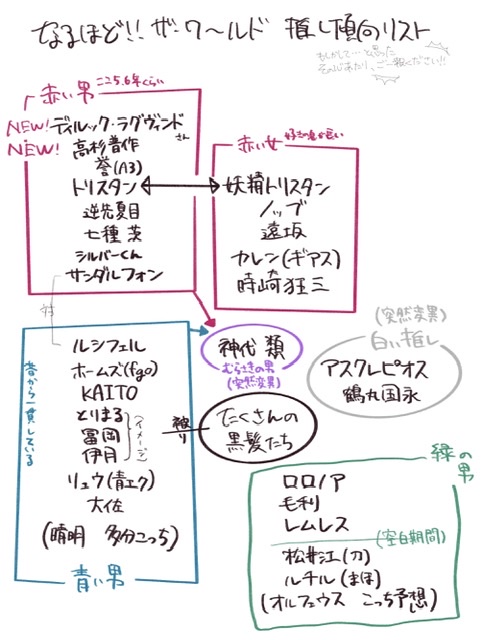 なるほど!! ザ・ワ〜ルド 推し傾向リスト
もしかして…と思った
そのじあたり、ご一報ください!!
赤い男
ここ5.6年くらい
NEW! ディルック・ラグヴィンド
さん
NEW! 高杉晋作
誉(A3)
トリスタン
逆先夏目
七種 茨
シルバーくん
サンダルフォン
赤い女
好きの息が長い
妖精トリスタン
ノッブ
遠坂
カレン(ギアス)
時崎狂三
対
ルシフェル
ホームズ(fgo)
KAITO
とりまる
冨岡
伊月
(イメージ)
リュウ(青エク)
大佐
(晴明 多分こっち)
青い男
昔から一貫している
被り
神代 類
むらさきの男
(突然変異)
たくさんの
黒髪たち
(突然変異)
白い推し
アスクレピオス
鶴丸国永
緑の男
ロロノア
毛利
レムレス
(空白期間)
松井江(刀)
ルチル(まほ)
(オルフェウス こっち予想)